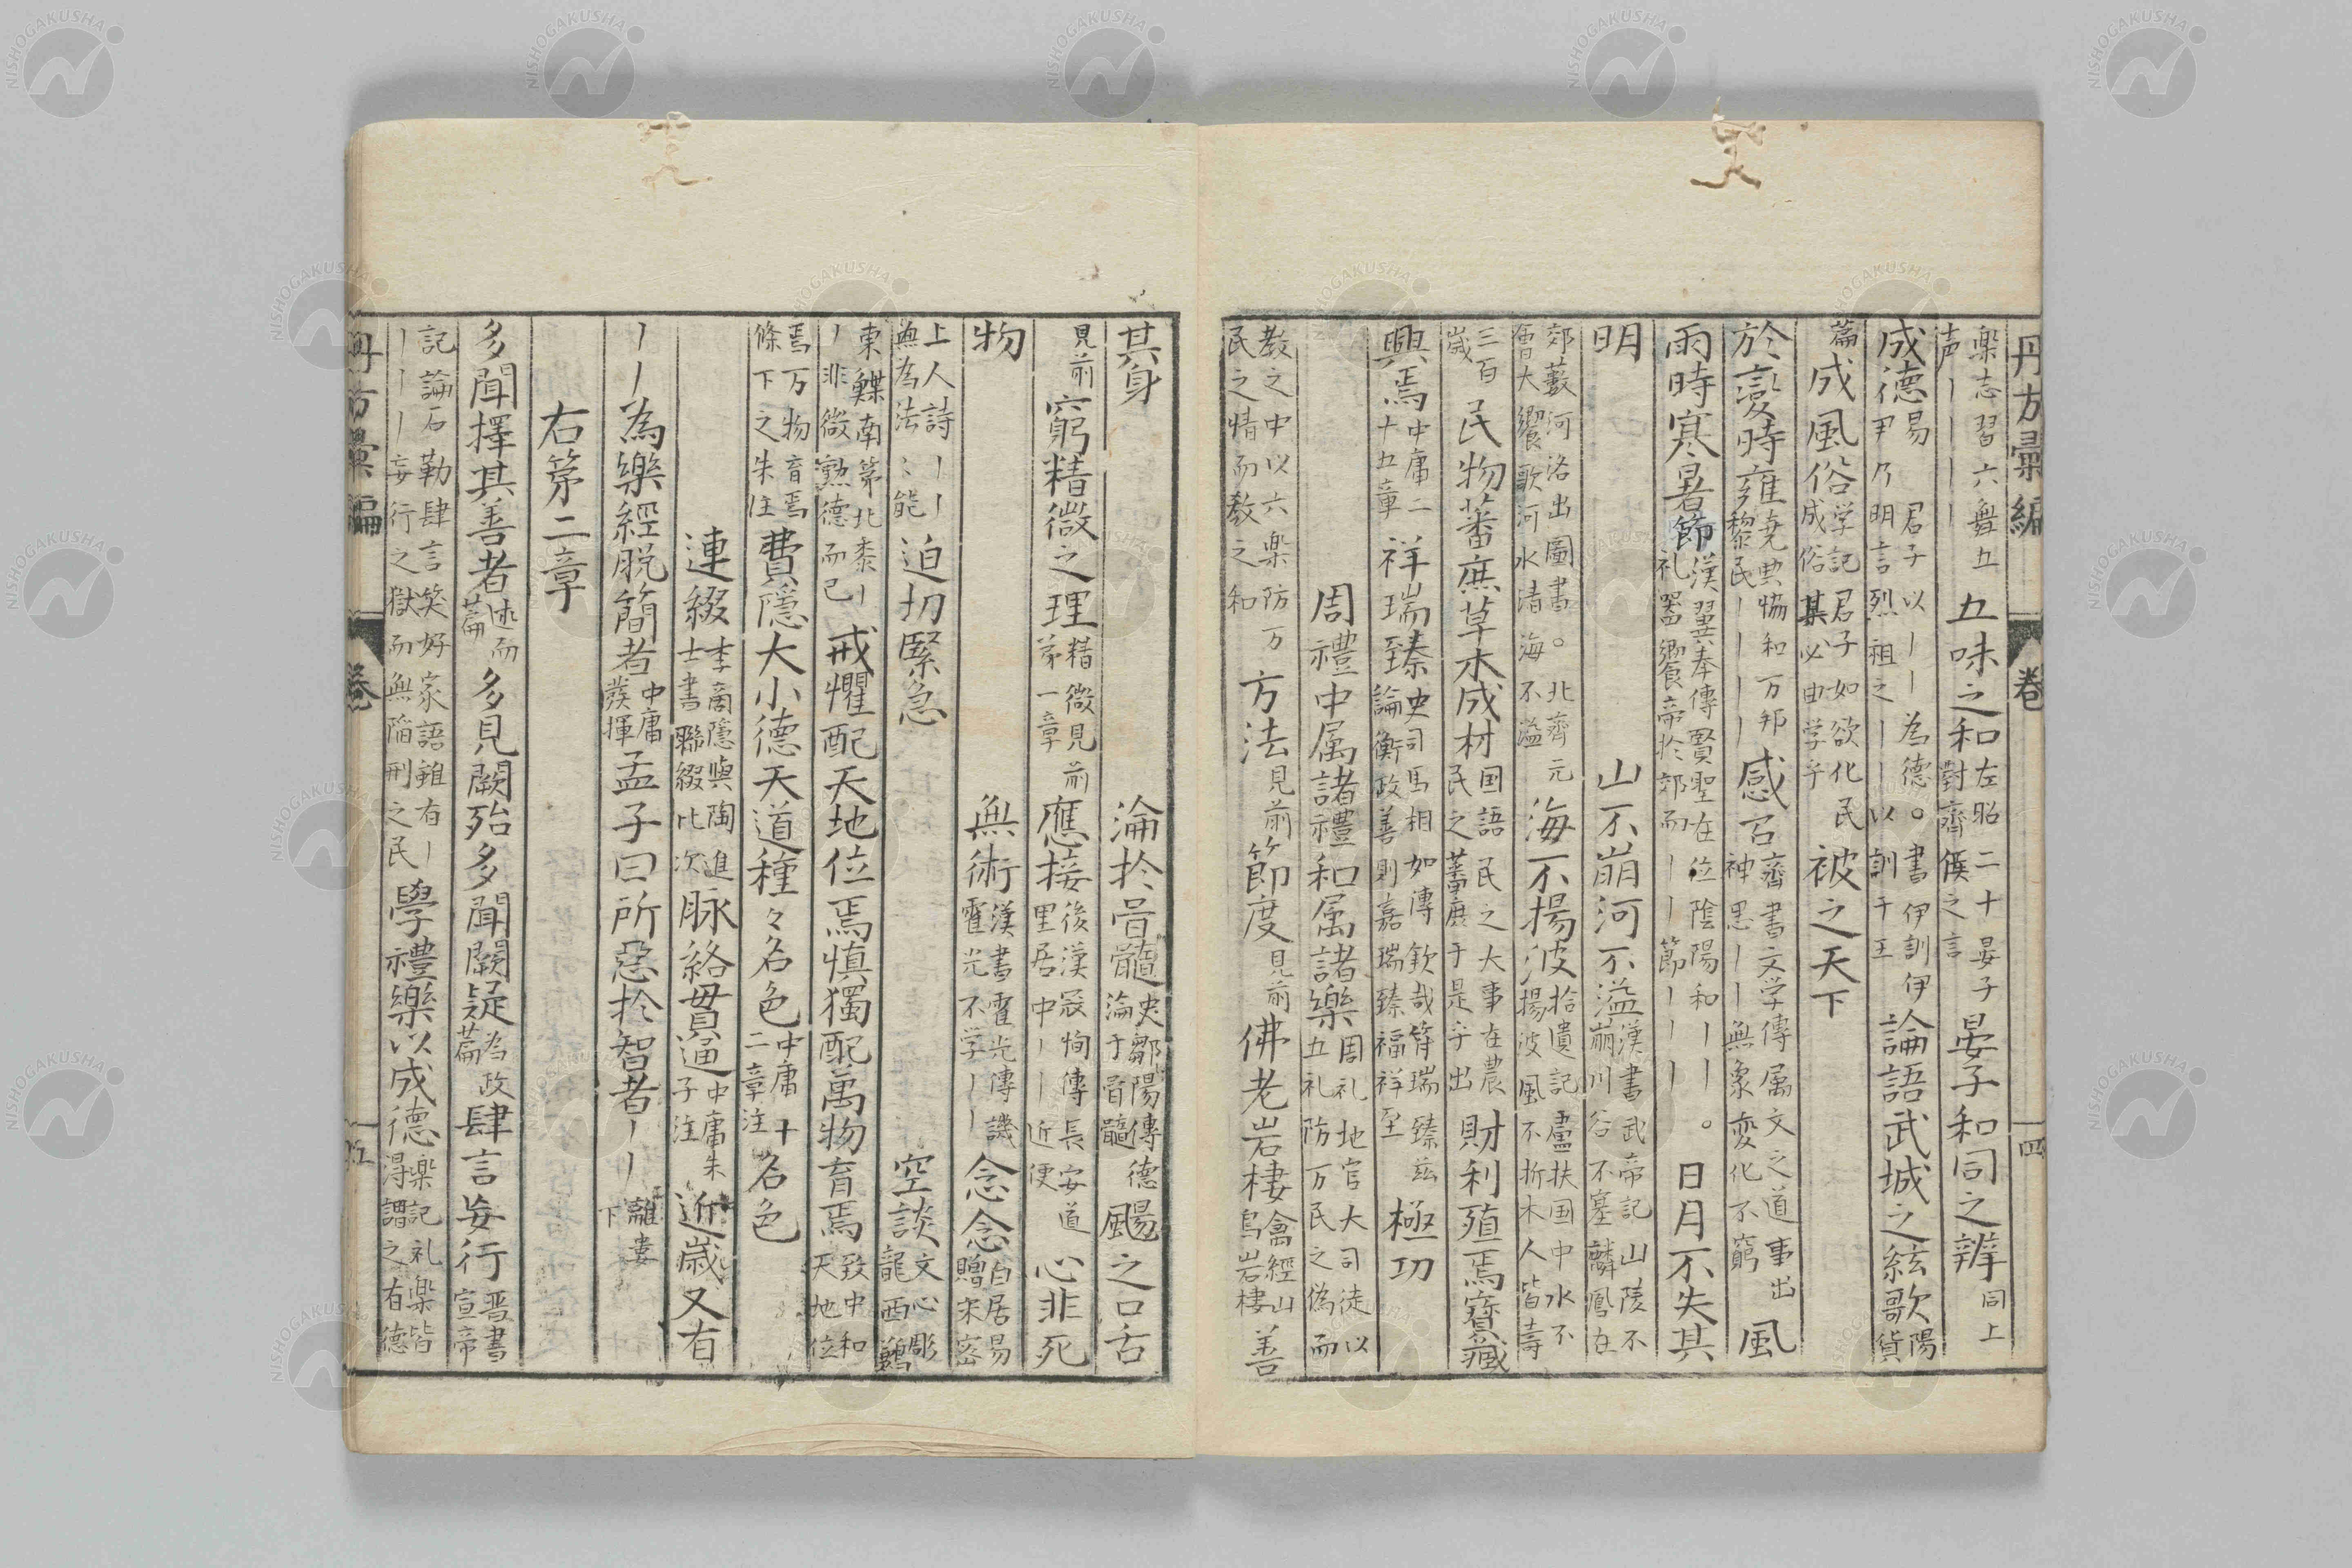 丹方彙編 卷 四
楽志習六舞五声｜｜｜｜ 五味之和 左昭二十晏子對齊侯之言 晏子和同之辨 同上
成德 易君子以｜｜為德。書伊訓伊尹乃明言烈祖之｜｜以訓于王 論語武城之絃歌 陽貨
篇 成風俗 学記君子如欲化民成俗其必由学乎 被之天下
於變時雍 堯典協和万邦黎民｜｜｜｜ 感召 齊書文学傳属文之道事出神思｜｜無象変化不窮 風
雨時寒暑節 漢翼奉傳賢聖在位陰陽和｜｜。礼器饗帝於郊而｜｜｜節｜｜｜ 日月不失其
明 山不崩河不溢 漢書武帝記山陵不崩川谷不塞麟鳳在
郊藪河洛出圖書。北齊元會大饗歌河水清海不溢 海不揚波 拾遺記盧扶国中水不揚波風不折木人皆壽
三百歲 民物蕃庶草木成材 国語民之大事在農民之蕃庶于是乎出 財利殖焉寶藏
興焉 中庸二十五章 祥瑞臻 史司馬相如傳欽哉符瑞臻兹論衡政善則嘉瑞臻福祥至 極功
周禮中属諸禮和属諸樂 周礼地官大司徒以五礼防万民之偽而
教之中以六楽防万民之情而教之和 方法 見前 節度 見前 佛老岩棲 禽經山鳥岩棲 善
其身 淪於骨髓 史鄒陽傳德淪于骨髓 颺之口舌
見前 窮精微之理 精微見前第一章 應接 後漢寇恂傳長安道里居中｜｜近便 心非死
物 無術 漢書霍光傳譏霍光不学｜｜ 念念 白居易贈宋密
上人詩｜｜｜無為法〻能 迫切緊急 空談 文心彫龍西鶼
東鰈南茅北黍｜｜非微勲德而已 戒懼配天地位焉慎獨配萬物育焉 致中和天地位
焉万物育焉條下之朱注 費隱大小德天道種々名色 中庸十二章注 名色
連綴 李商隱與陶進士書聯綴比次 脉絡貫通 中庸朱子注 近歲又有
｜｜為樂經脱簡者 中庸蕟揮 孟子曰所惡於智者｜｜ 離婁下
右第二章
多聞擇其善者 述而篇 多見闕殆多聞闕疑 為政篇 肆言妄行 晋書宣帝
記論石勒肆言笑好家語雖有｜｜｜｜妄行之獄而無陥刑之民 學禮樂以成德 楽記礼楽皆得謂之有德
丹方彙編 卷 五